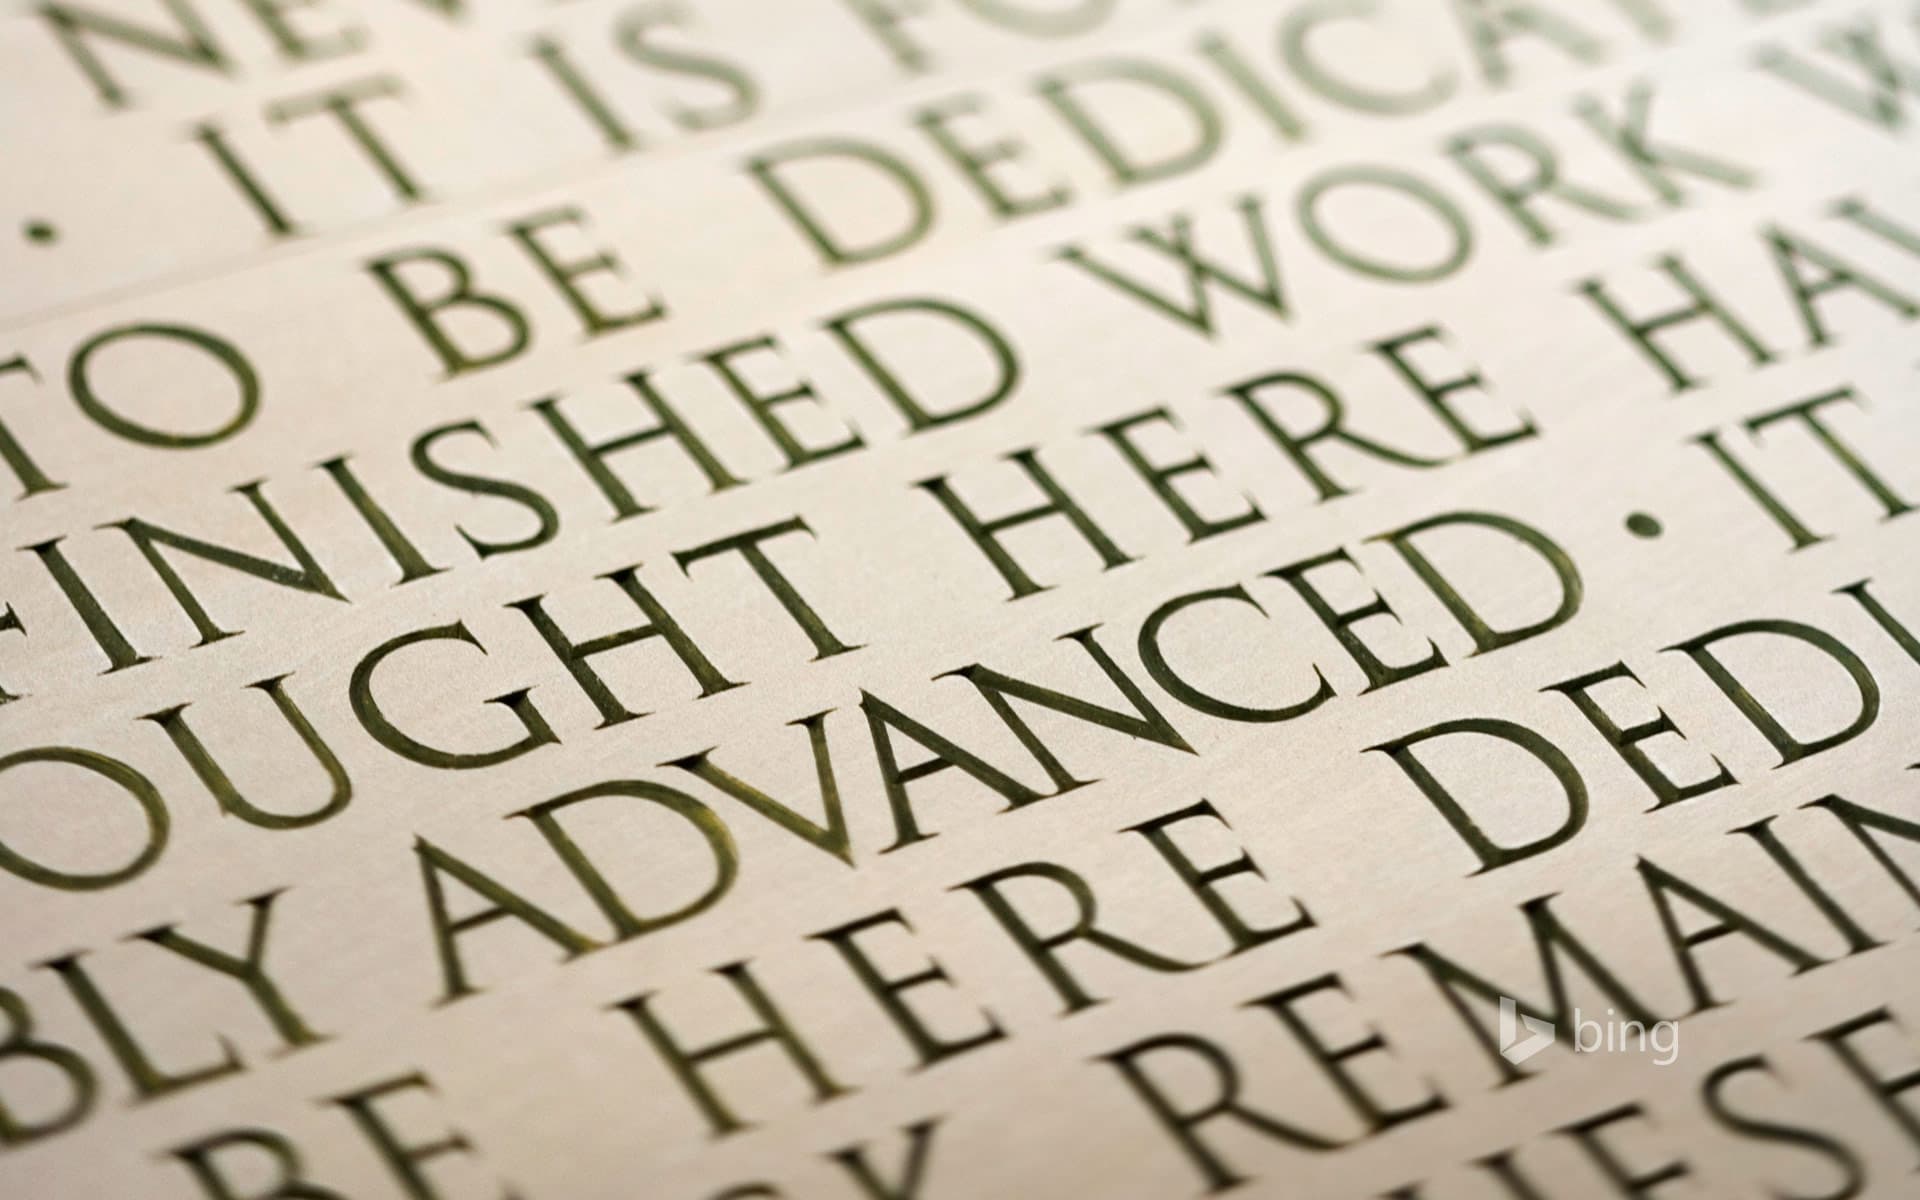 NEW
· IT IS FO
TO BE DEDICAT
FINISHED WORK W
OUGHT HERE HAV
BLY ADVANCED · IT
BE HERE DEDI
RK REMAIN
bing